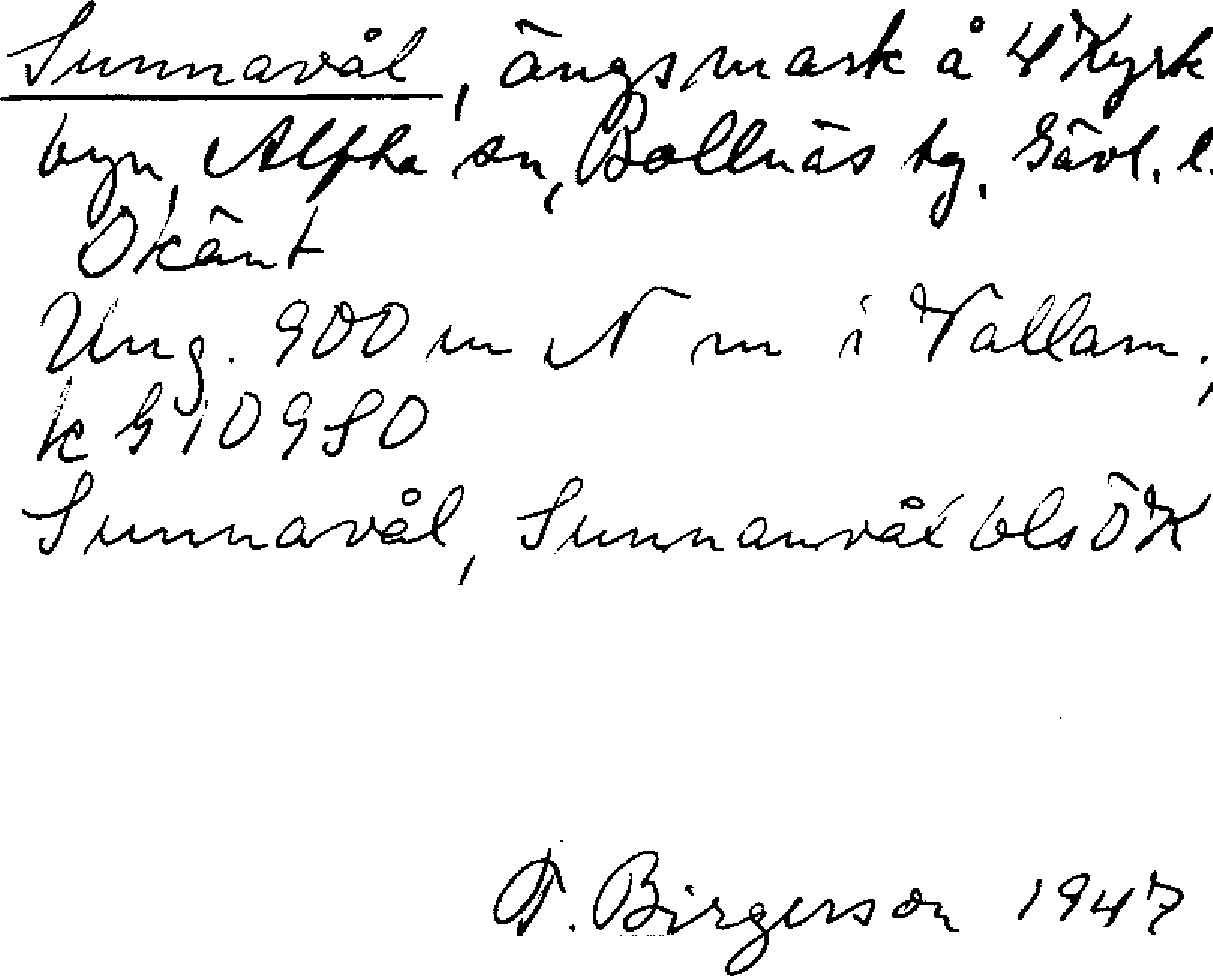 Sunnavål, ängsmark å 4 Kyrk
byn, Alfta sn, Bollnäs tg. Gävl. l.
Okänt
Ung. 900 m N m i Vallam.,
k G10980
Sunnavål, Sunnanvål bls ÖK
F. Birgerson 1947